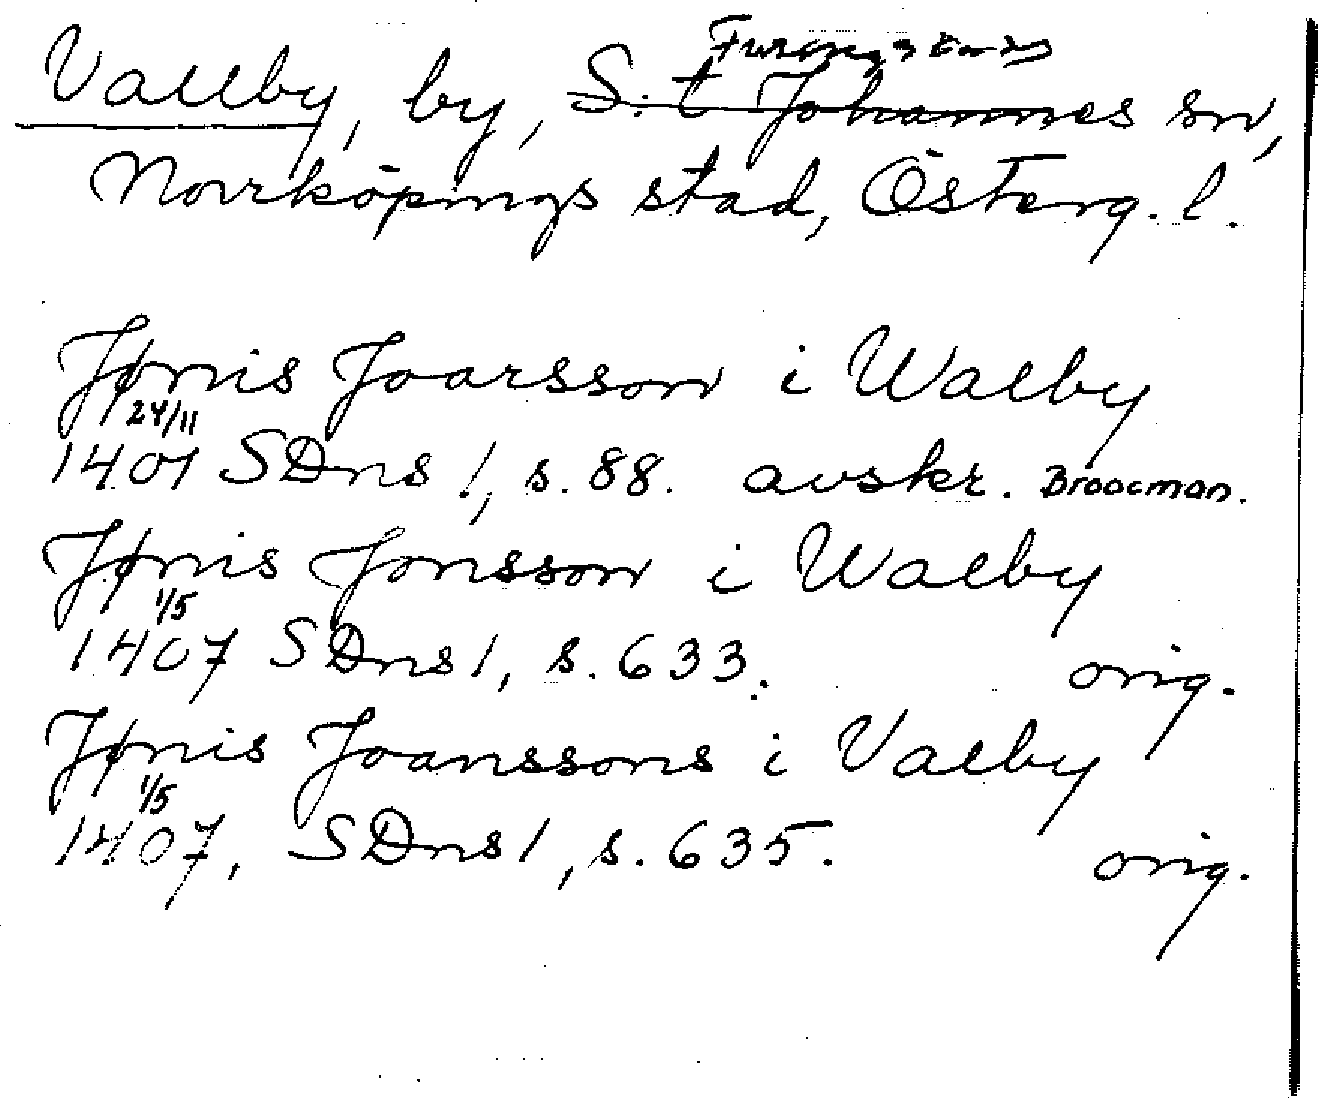 Vallby, by, S:t Johannes sn,
Norrköpings stad, Österg. l.
Jønis Joarsson i Walby
24/11
1401 SDns 1, s. 88. avskr. Broocman.
Jønis Jonsson i Walby
1/5
1407 SDns 1, s. 633. orig.
Jønis Joanssons i Valby
1/5
1407, SDns 1, s. 635. orig.